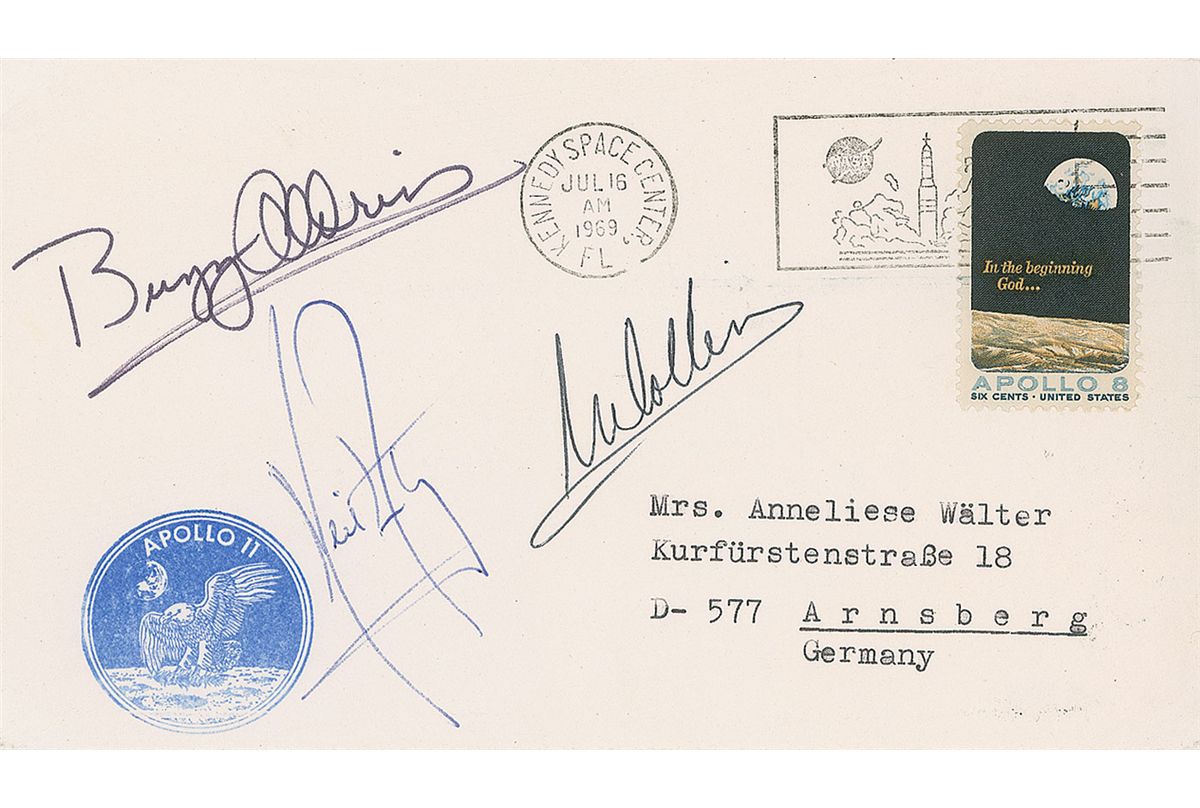 Buzz Aldrin
KENNEDY SPACE CENTER
JUL 16
AM
1969
FL
NASA
In the beginning
God...
APOLLO 8
SIX CENTS · UNITED STATES
M Collins
Neil
APOLLO 11
Mrs. Anneliese Wälter
Kurfürstenstraße 18
D- 577 Arnsberg
Germany